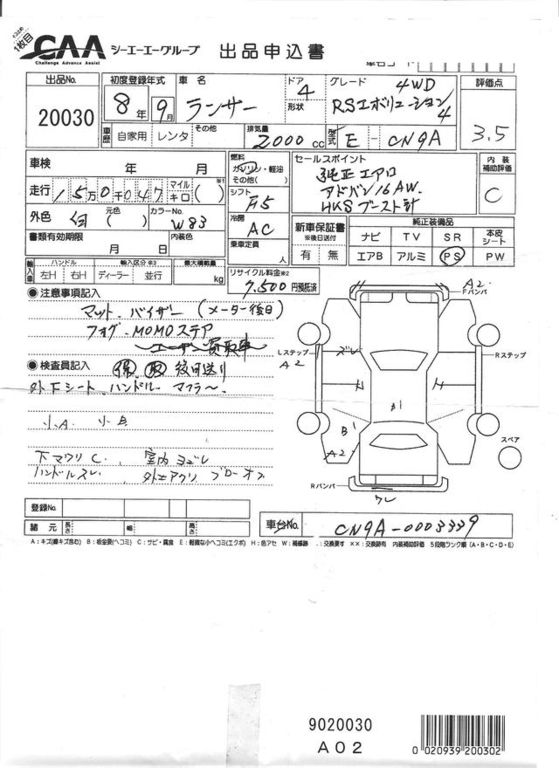 1枚目
CAA
Challenge Advance Assist
シーエーエーグループ 出品申込書
出品No.
20030
初度登録年式
8年9月
車名
ランサー
ドア
4
形状
グレード
4WD
RSエボリューション4
評価点
3.5
車歴
自家用 レンタ その他
排気量
2000cc
型式
E-CN9A
車検 年 月
走行 15万0千047 マイル キロ
外色 白 元色( ) カラーNo. W83
書類有効期限 月 日
内装色
燃料
ガソリン・軽油
その他( )
シフト
F5
冷房
AC
乗車定員 人
セールスポイント
純正エアロ
アドバン16AW.
HKSブースト計
内装補助評価
C
新車保証書
※後日送付
有 無
純正装備品
ナビ TV SR 本皮シート
エアB アルミ PS PW
輸入車
ハンドル
左H 右H
輸入区分※3
ディーラー 並行
最大積載量
kg
リサイクル料金※2
7,500円預託済
注意事項記入
マット.バイザー (メーター後日)
フォグ.MOMOステア
〜ユーザー買取車〜
検査員記入
後日送り
外Fシート.ハンドル.マフラー
小A. 小凹
下マワリC. 室内ヨゴレ
ハンドルスレ
A2
Fバンパ
Lステップ
A2
Rステップ
ズレ
B1
A2
スペア
Rバンパ
ワレ
登録No.
諸元 長さ 幅 高さ
車台No.
CN9A-0003339
A:キズ(線キズ含む) B:板金要(ヘコミ) C:サビ・腐食 E:軽微な小ヘコミ(エクボ) H:色アセ W:補修跡 .:交換要す ××:交換跡有 内装補助評価 5段階ランク順(A・B・C・D・E)
9020030
A02
0 020939 200302